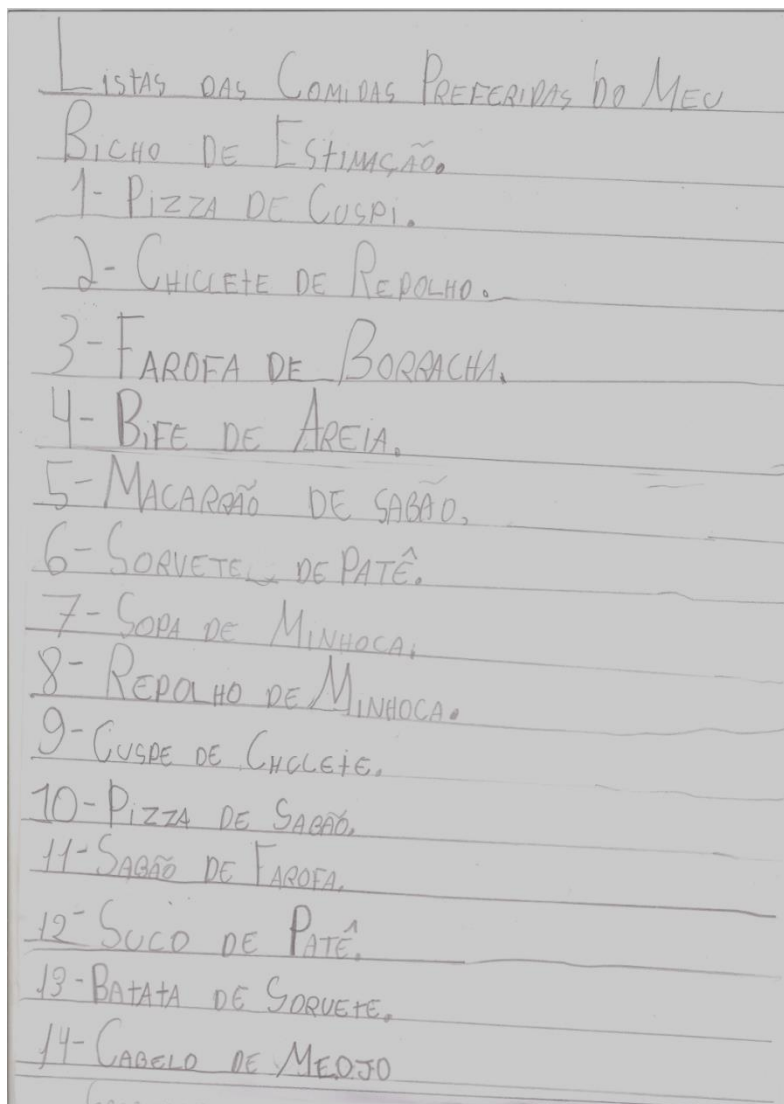 LISTAS DAS COMIDAS PREFERIDAS DO MEU
BICHO DE ESTIMAÇÃO.
1- PIZZA DE CUSPI.
2- CHICLETE DE REPOLHO.
3- FAROFA DE BORRACHA.
4- BIFE DE AREIA.
5- MACARRÃO DE SABÃO.
6- SORVETE DE PATÊ.
7- SOPA DE MINHOCA.
8- REPOLHO DE MINHOCA.
9- CUSPE DE CHCLETE.
10- PIZZA DE SABÃO.
11- SABÃO DE FAROFA.
12- SUCO DE PATÊ.
13- BATATA DE SORVETE.
14- CABELO DE MEOJO